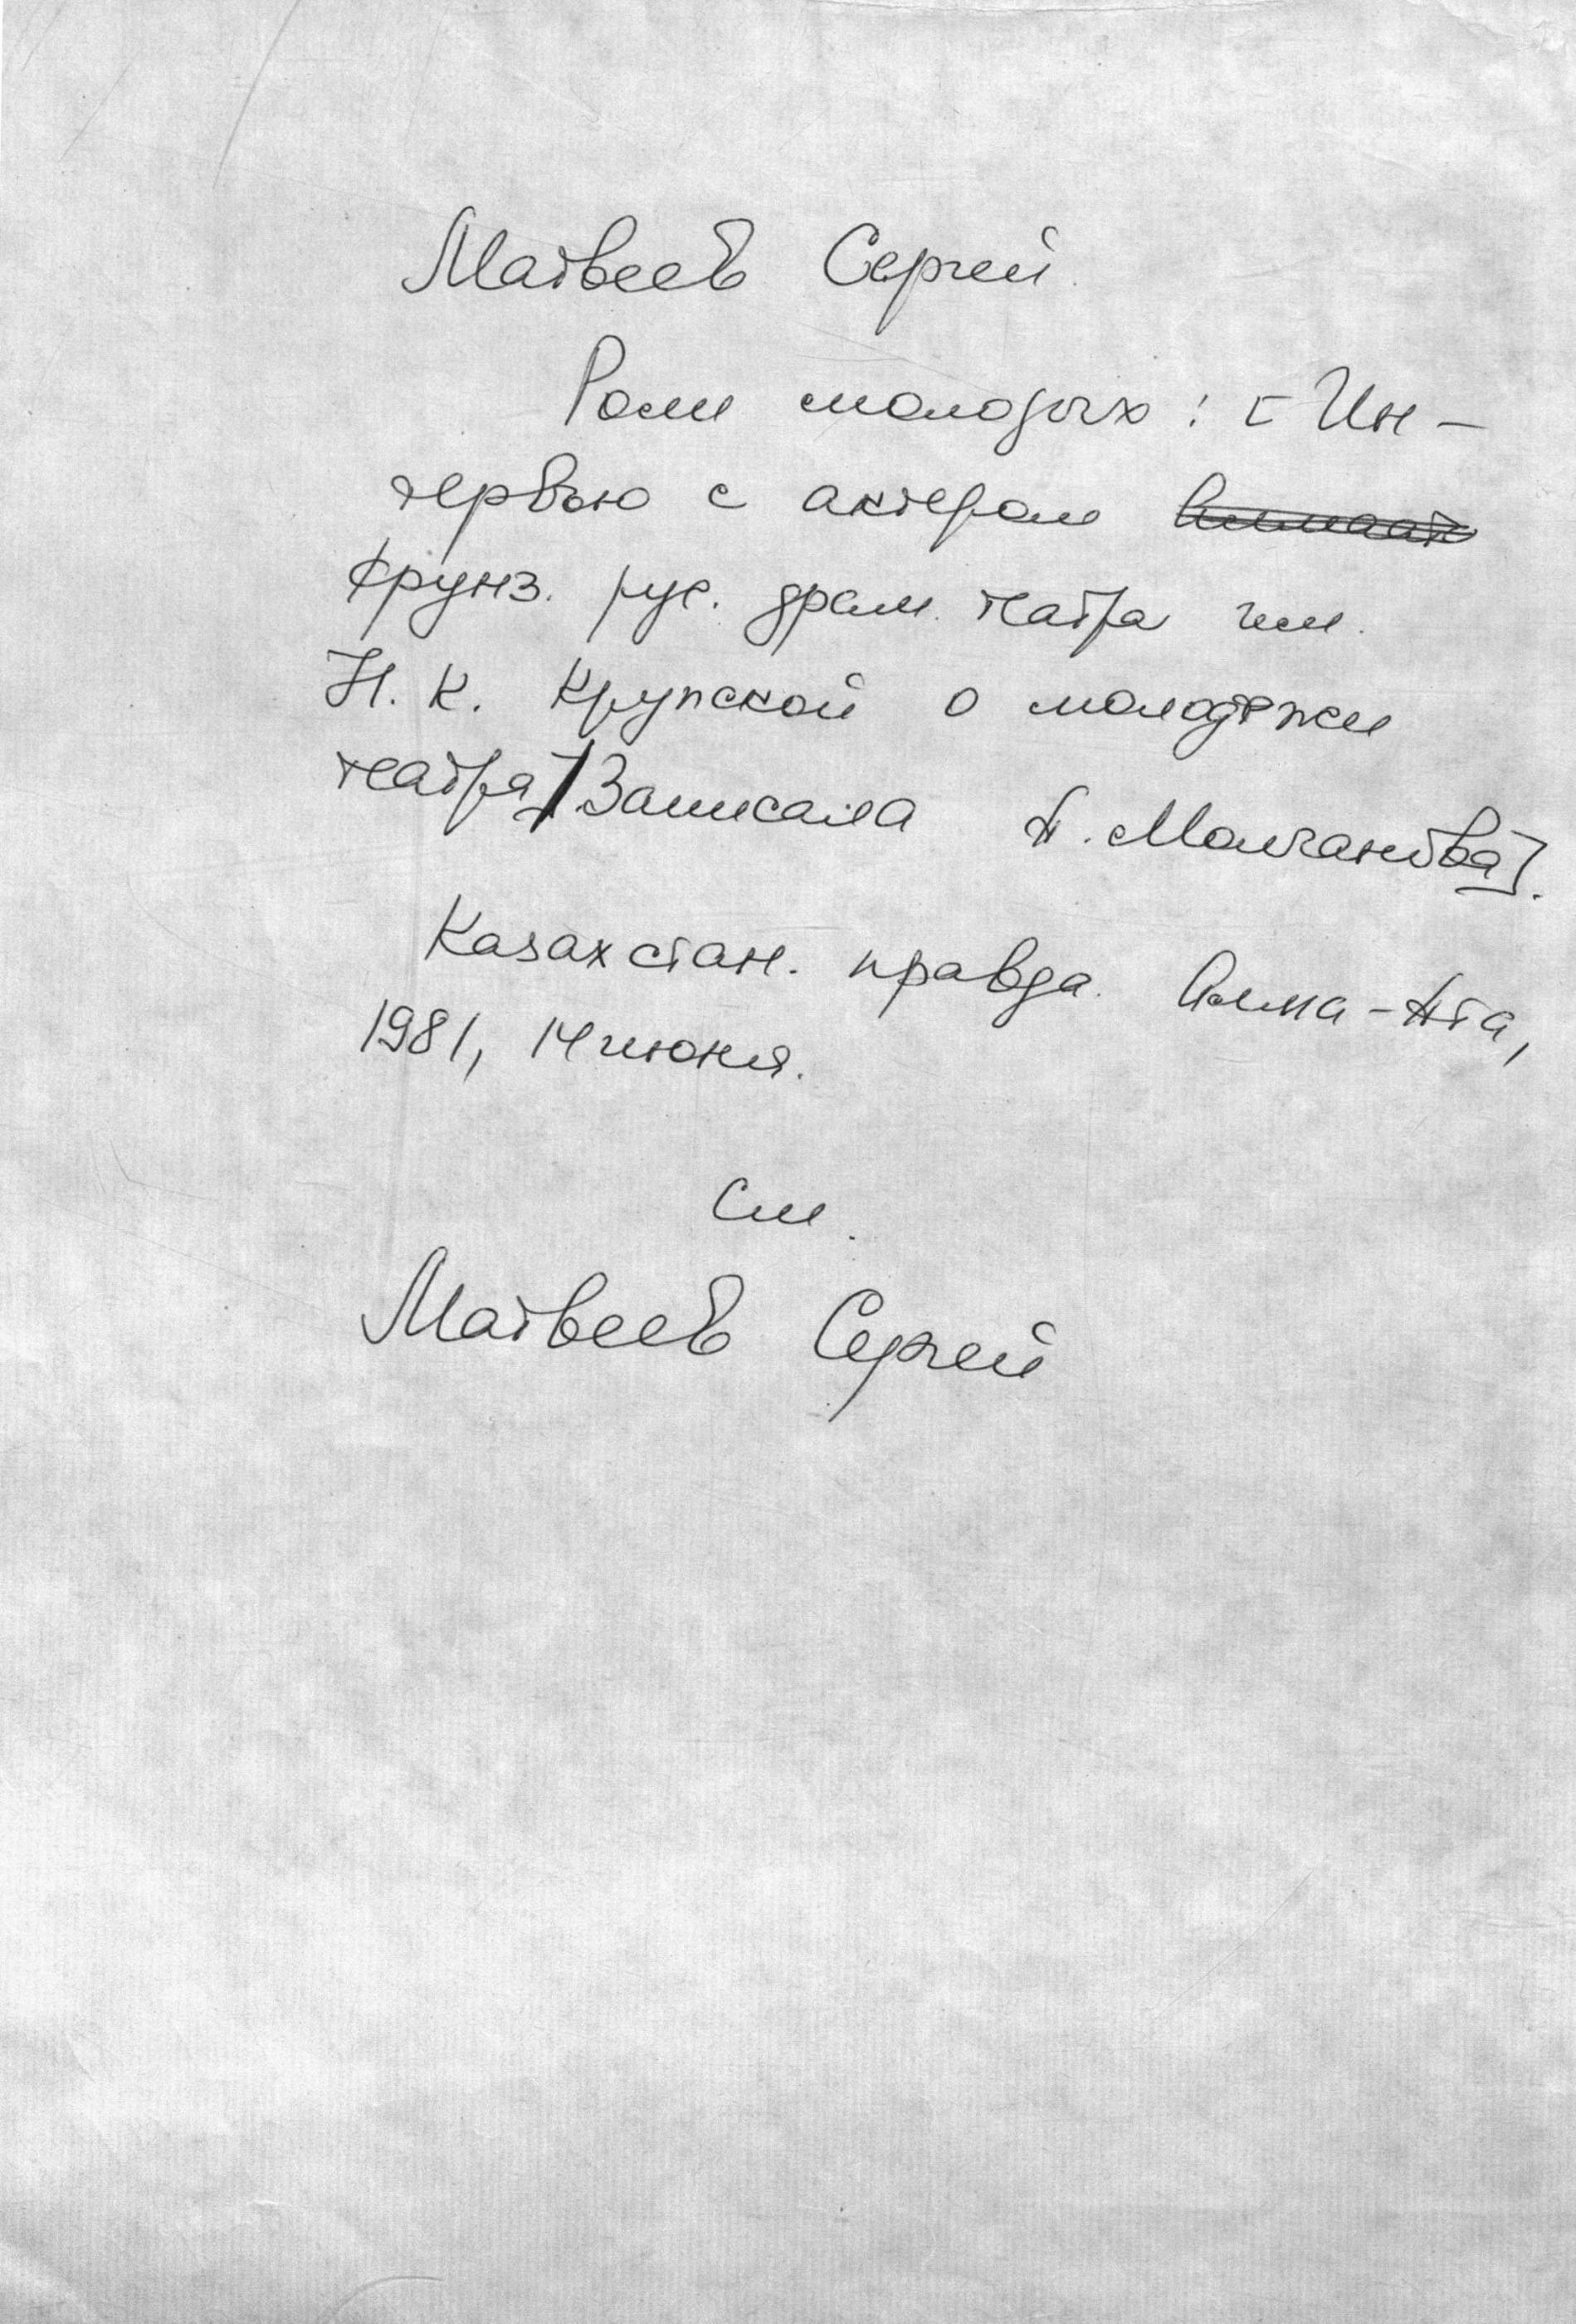 Матвеев Сергей.
Роли молодых: [Ин-
тервью с актером
Фрунз. рус. драм. театра им.
Н. К. Крупской о молодежи
театра]/Записала А. Молчанова].
Казахстан. правда. Алма-Ата,
1981, 14 июня.
См.
Матвеев Сергей